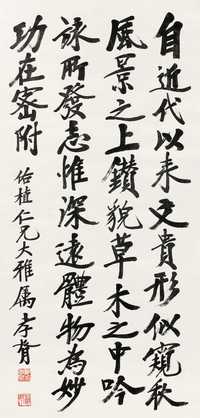 自近代以来文貴形似窺秋
風景之上鑽貌草木之中吟
詠所發志惟深遠體物為妙
功在密附
佑植仁兄大雅属 孝胥